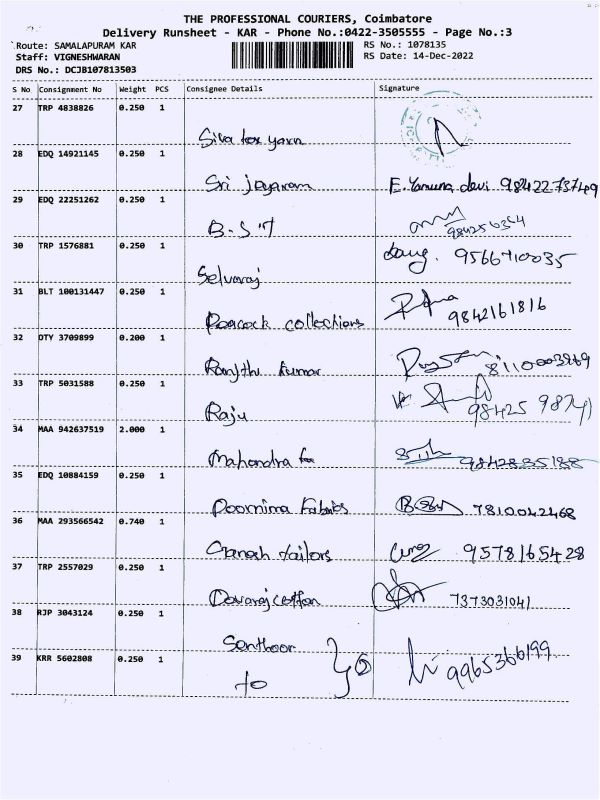 THE PROFESSIONAL COURIERS, Coimbatore
Delivery Runsheet - KAR - Phone No.:0422-3505555 - Page No.:3
Route: SAMALAPURAM KAR RS No.: 1078135
Staff: VIGNESHWARAN RS Date: 14-Dec-2022
DRS No.: DCJB107813503
S No Consignment No Weight PCS Consignee Details Signature
27 TRP 4838826 0.250 1
Siva tex yarn
28 EDQ 14921145 0.250 1
Sri jayaram E. Yamuna devi 9842273749
29 EDQ 22251262 0.250 1
B.S.T
30 TRP 1576881 0.250 1
Selvaraj 9566710035
31 BLT 100131447 0.250 1
Peacock collections 9842161816
32 DTY 3709899 0.200 1
Ranjith kumar 8110003969
33 TRP 5031588 0.250 1
Raju
34 MAA 942637519 2.000 1
Mahendra tex 9842835188
35 EDQ 10884159 0.250 1
Poornima Fabrics 7810042468
36 MAA 293566542 0.740 1
Ganesh tailors 9578165428
37 TRP 2557029 0.250 1
Devaraj cotton 7373031041
38 RJP 3043124 0.250 1
Santhoor
39 KRR 5602808 0.250 1
to 40 9965366199